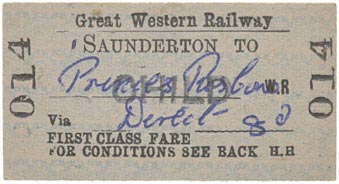 Great Western Railway
SAUNDERTON TO
Princes Risboro
W R
CHILD
Via Direct 8d
FIRST CLASS FARE
FOR CONDITIONS SEE BACK H.H
014
014